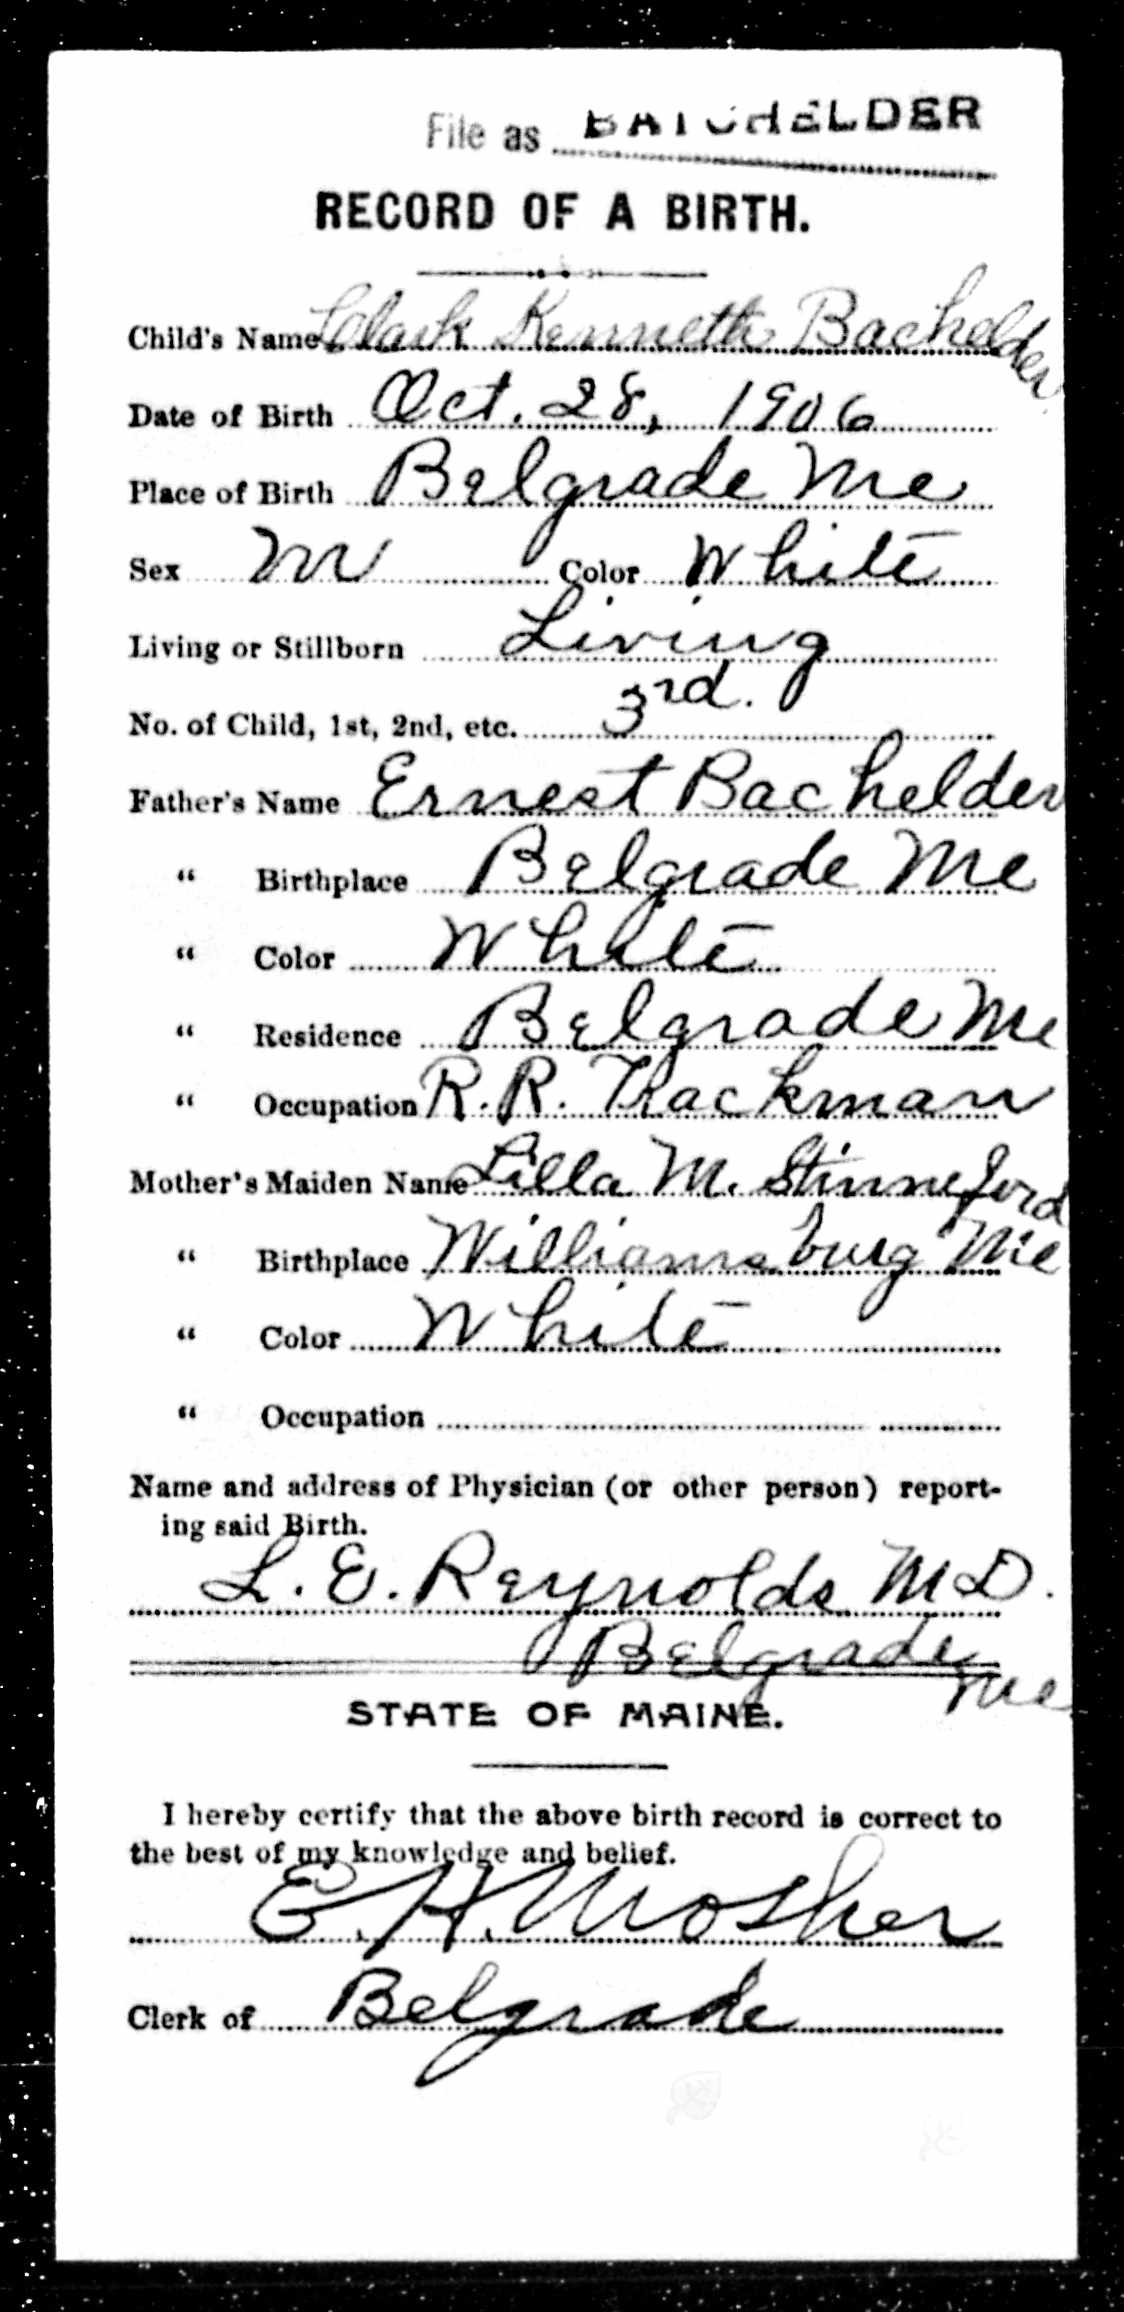 File as BATCHELDER
RECORD OF A BIRTH.
Child's Name Clark Kenneth Bachelder
Date of Birth Oct. 28, 1906
Place of Birth Belgrade Me
Sex M Color White
Living or Stillborn Living
No. of Child, 1st, 2nd, etc. 3rd.
Father's Name Ernest Bachelder
" Birthplace Belgrade Me
" Color White
" Residence Belgrade Me
" Occupation R.R. Trackman
Mother's Maiden Name Lilla M. Stinneford
" Birthplace Williamsburg Me
" Color White
" Occupation
Name and address of Physician (or other person) report-
ing said Birth.
L. E. Reynolds M D.
Belgrade
Me
STATE OF MAINE.
I hereby certify that the above birth record is correct to
the best of my knowledge and belief.
E. H. Mosher
Clerk of Belgrade